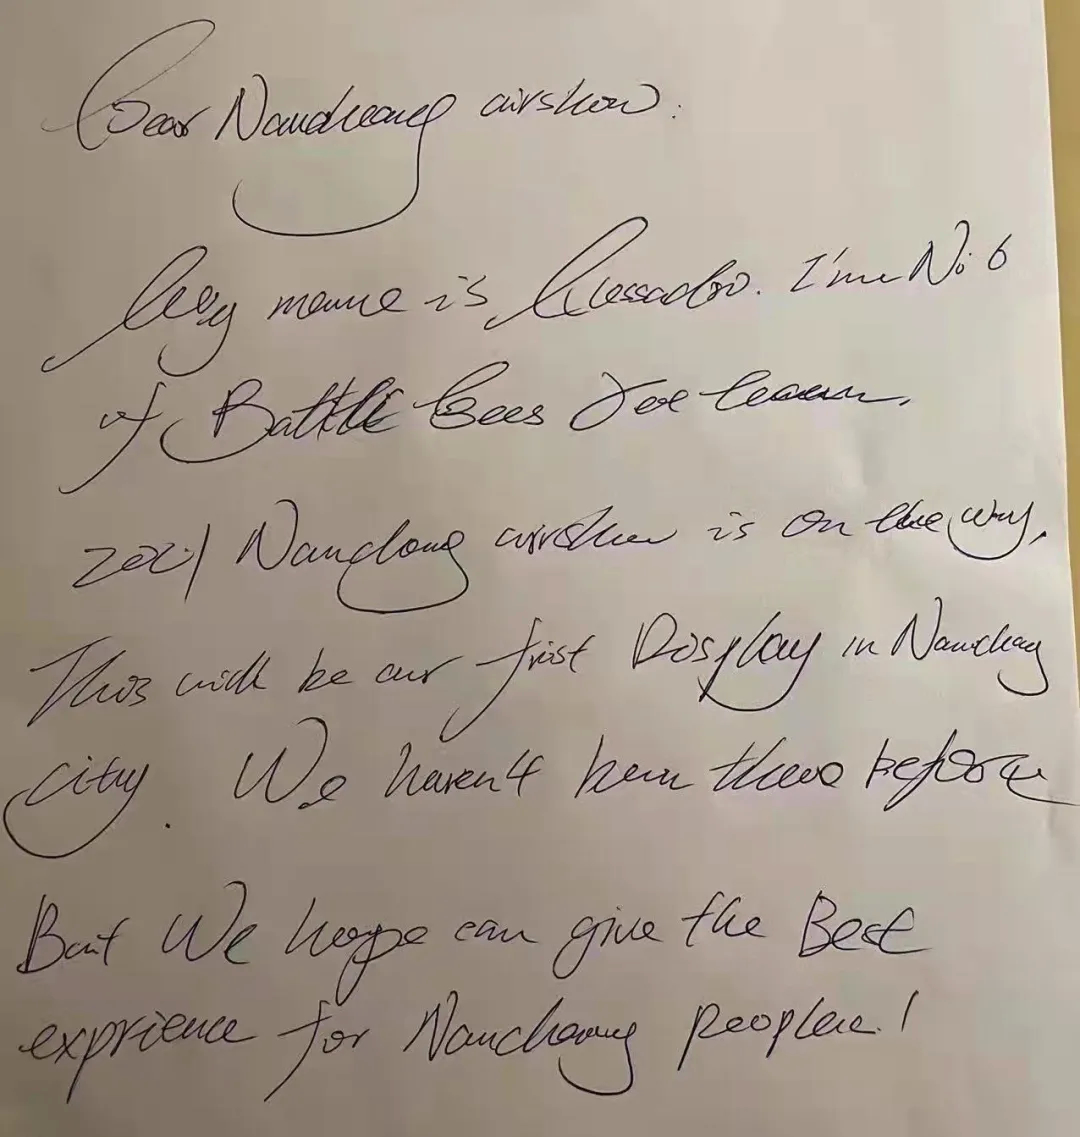 Dear Nanchang airshow:
My name is I'm No 6
of Battle bees Jet team.
2021 Nanchang airshow is on the way,
This will be our first Display in Nanchang
city. We haven't been there before
But We hope can give the Best
exprience for Nanchang people!